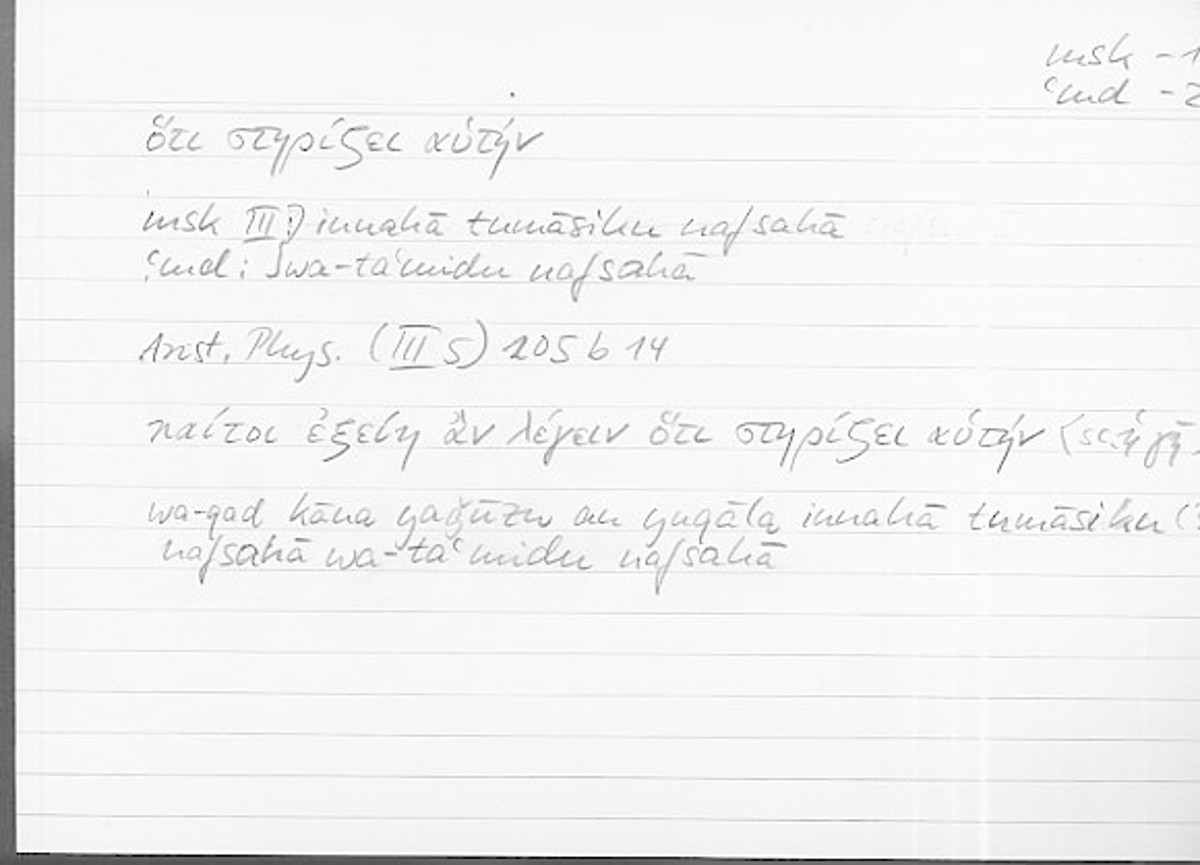 msk - 1
ʿmd - 2
ὅτι στηρίζει αὑτήν
msk III:) innahā tumāsiku nafsahā
ʿmd: ) wa-taʿmidu nafsahā
Arist. Phys. (III 5) 205 b 14
καίτοι ἐξείη ἂν λέγειν ὅτι στηρίζει αὑτήν (sc. ἡ γῆ
wa-qad kāna yaǧūzu an yuqāla innahā tumāsiku (
nafsahā wa-taʿmidu nafsahā